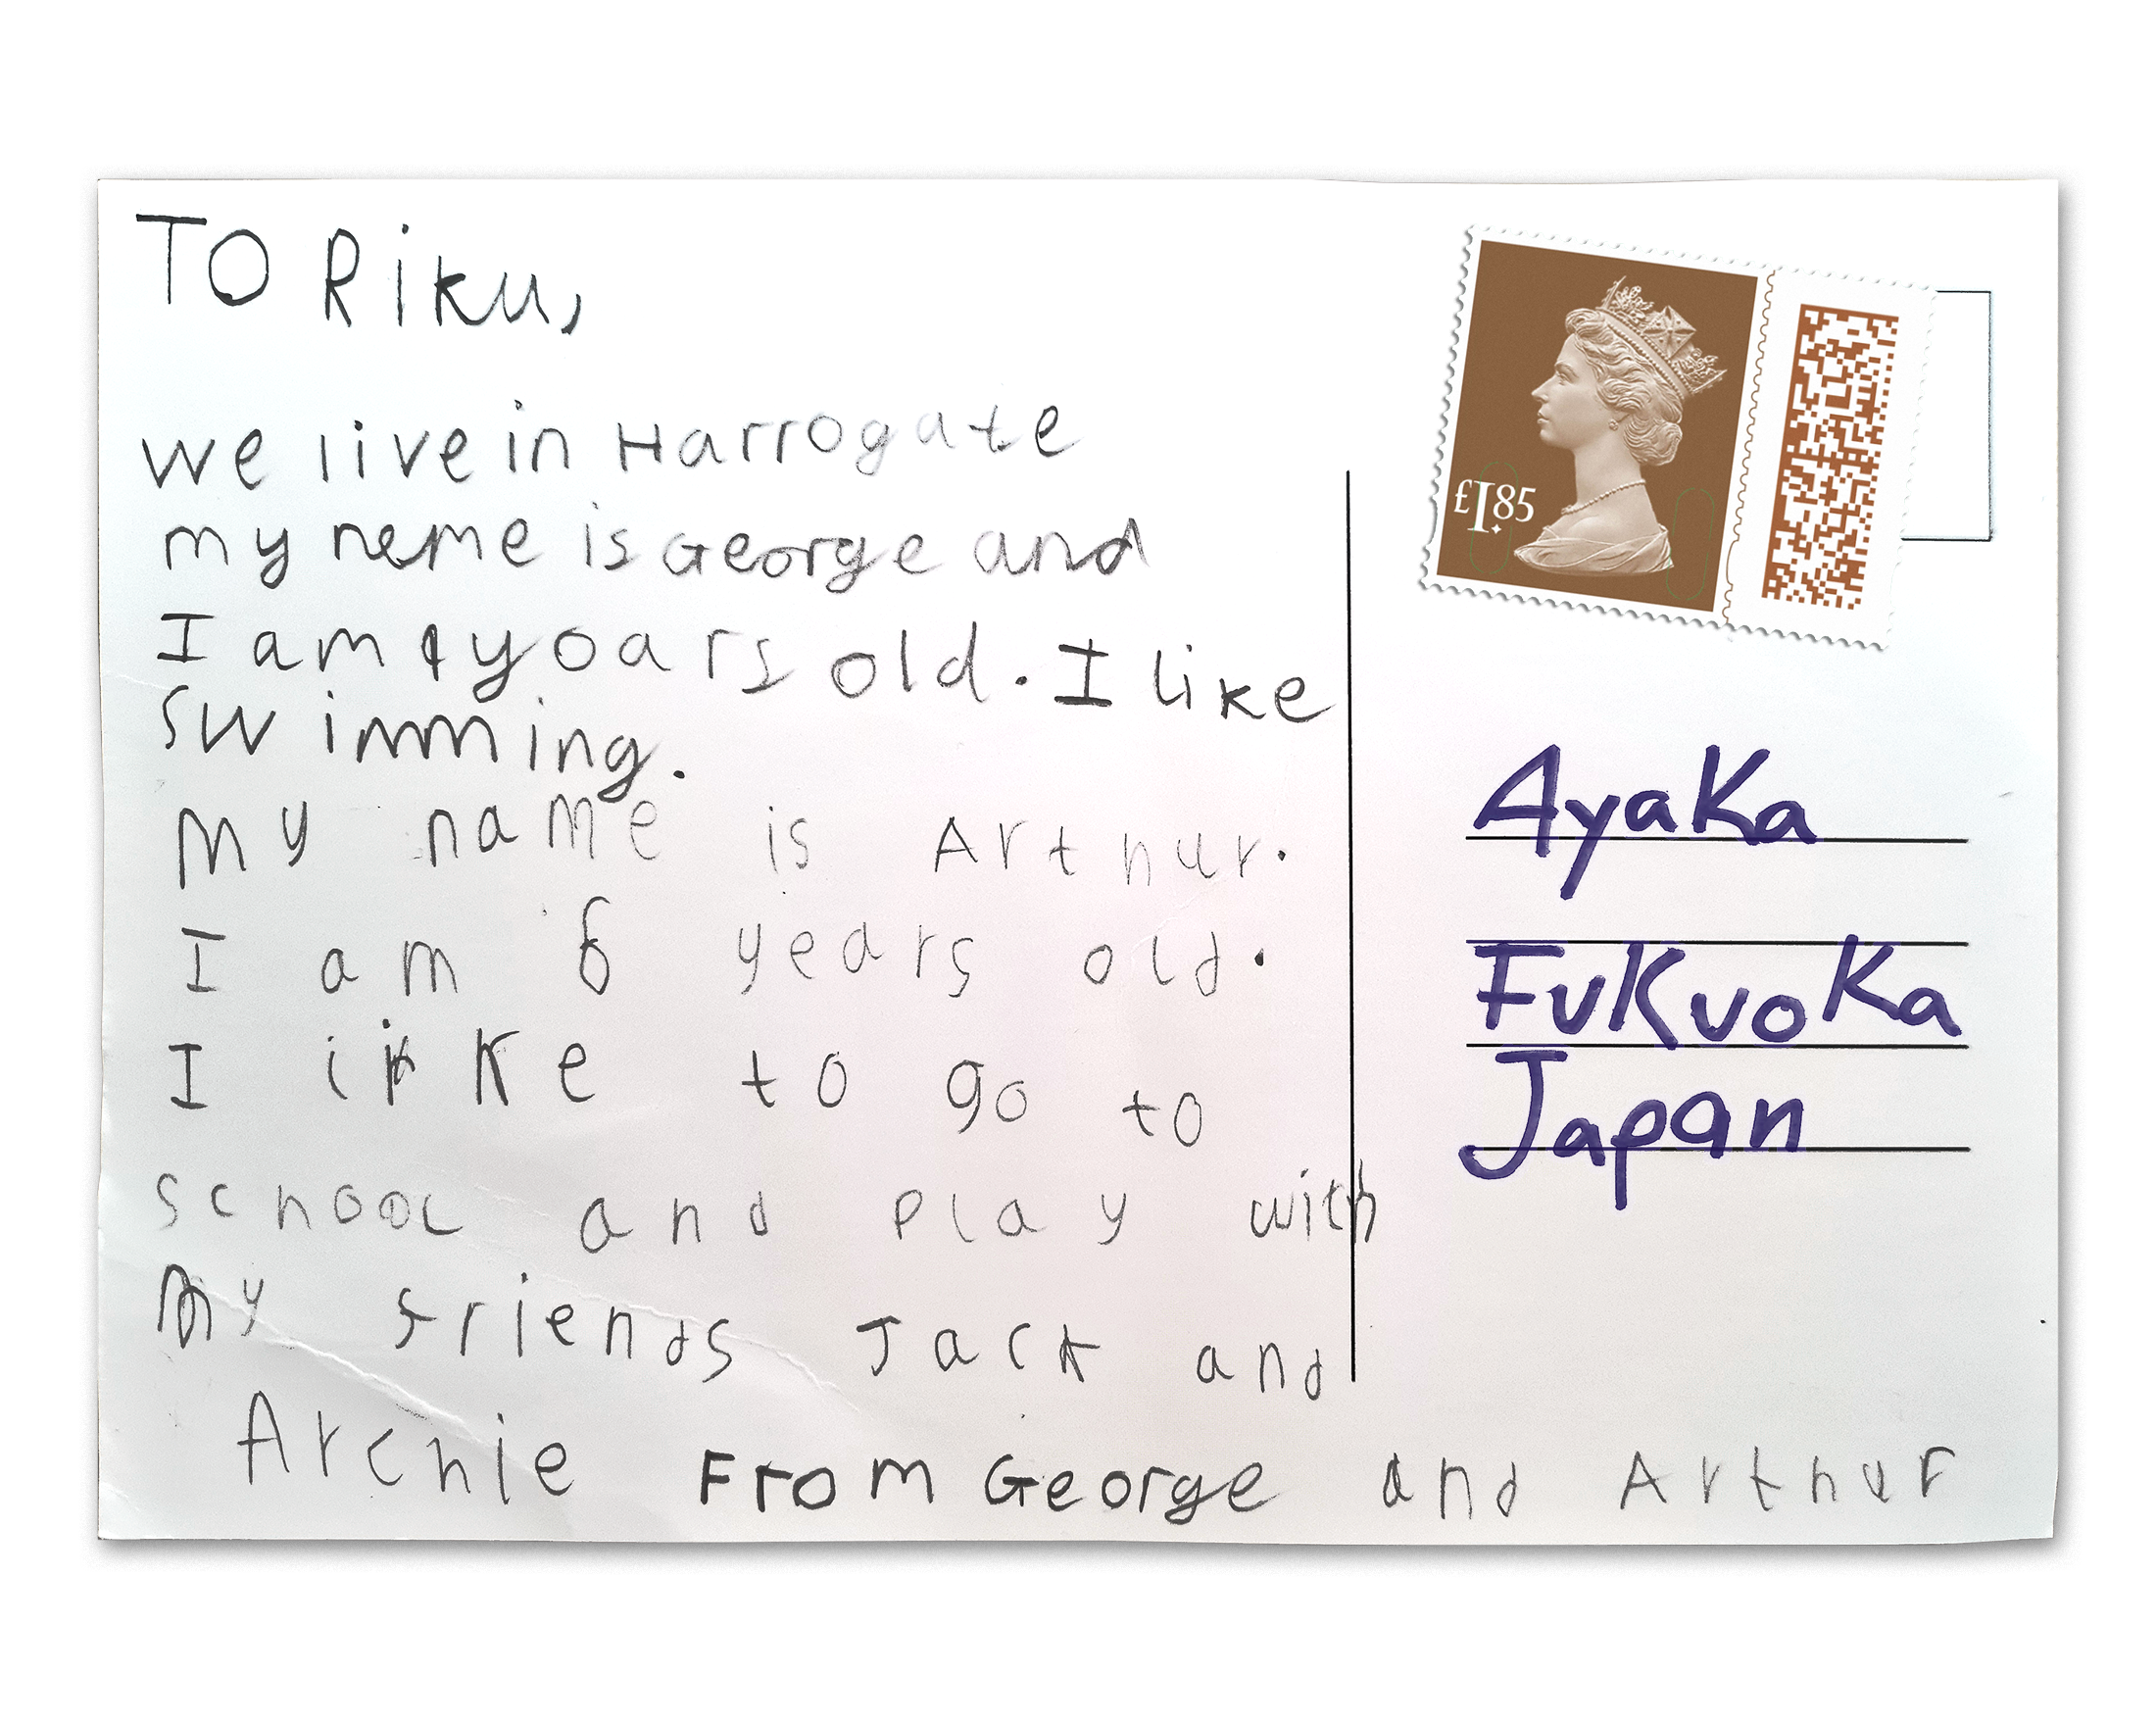 To Riku,
We live in Harrogate
my neme is George and
I am yoars old. I like
swimming.
My name is Arthur.
I am 6 years old.
I ke to go to
school and play with
my friends Jack and
Archie From George and Arthur
£1.85
Ayaka
Fukuoka
Japan